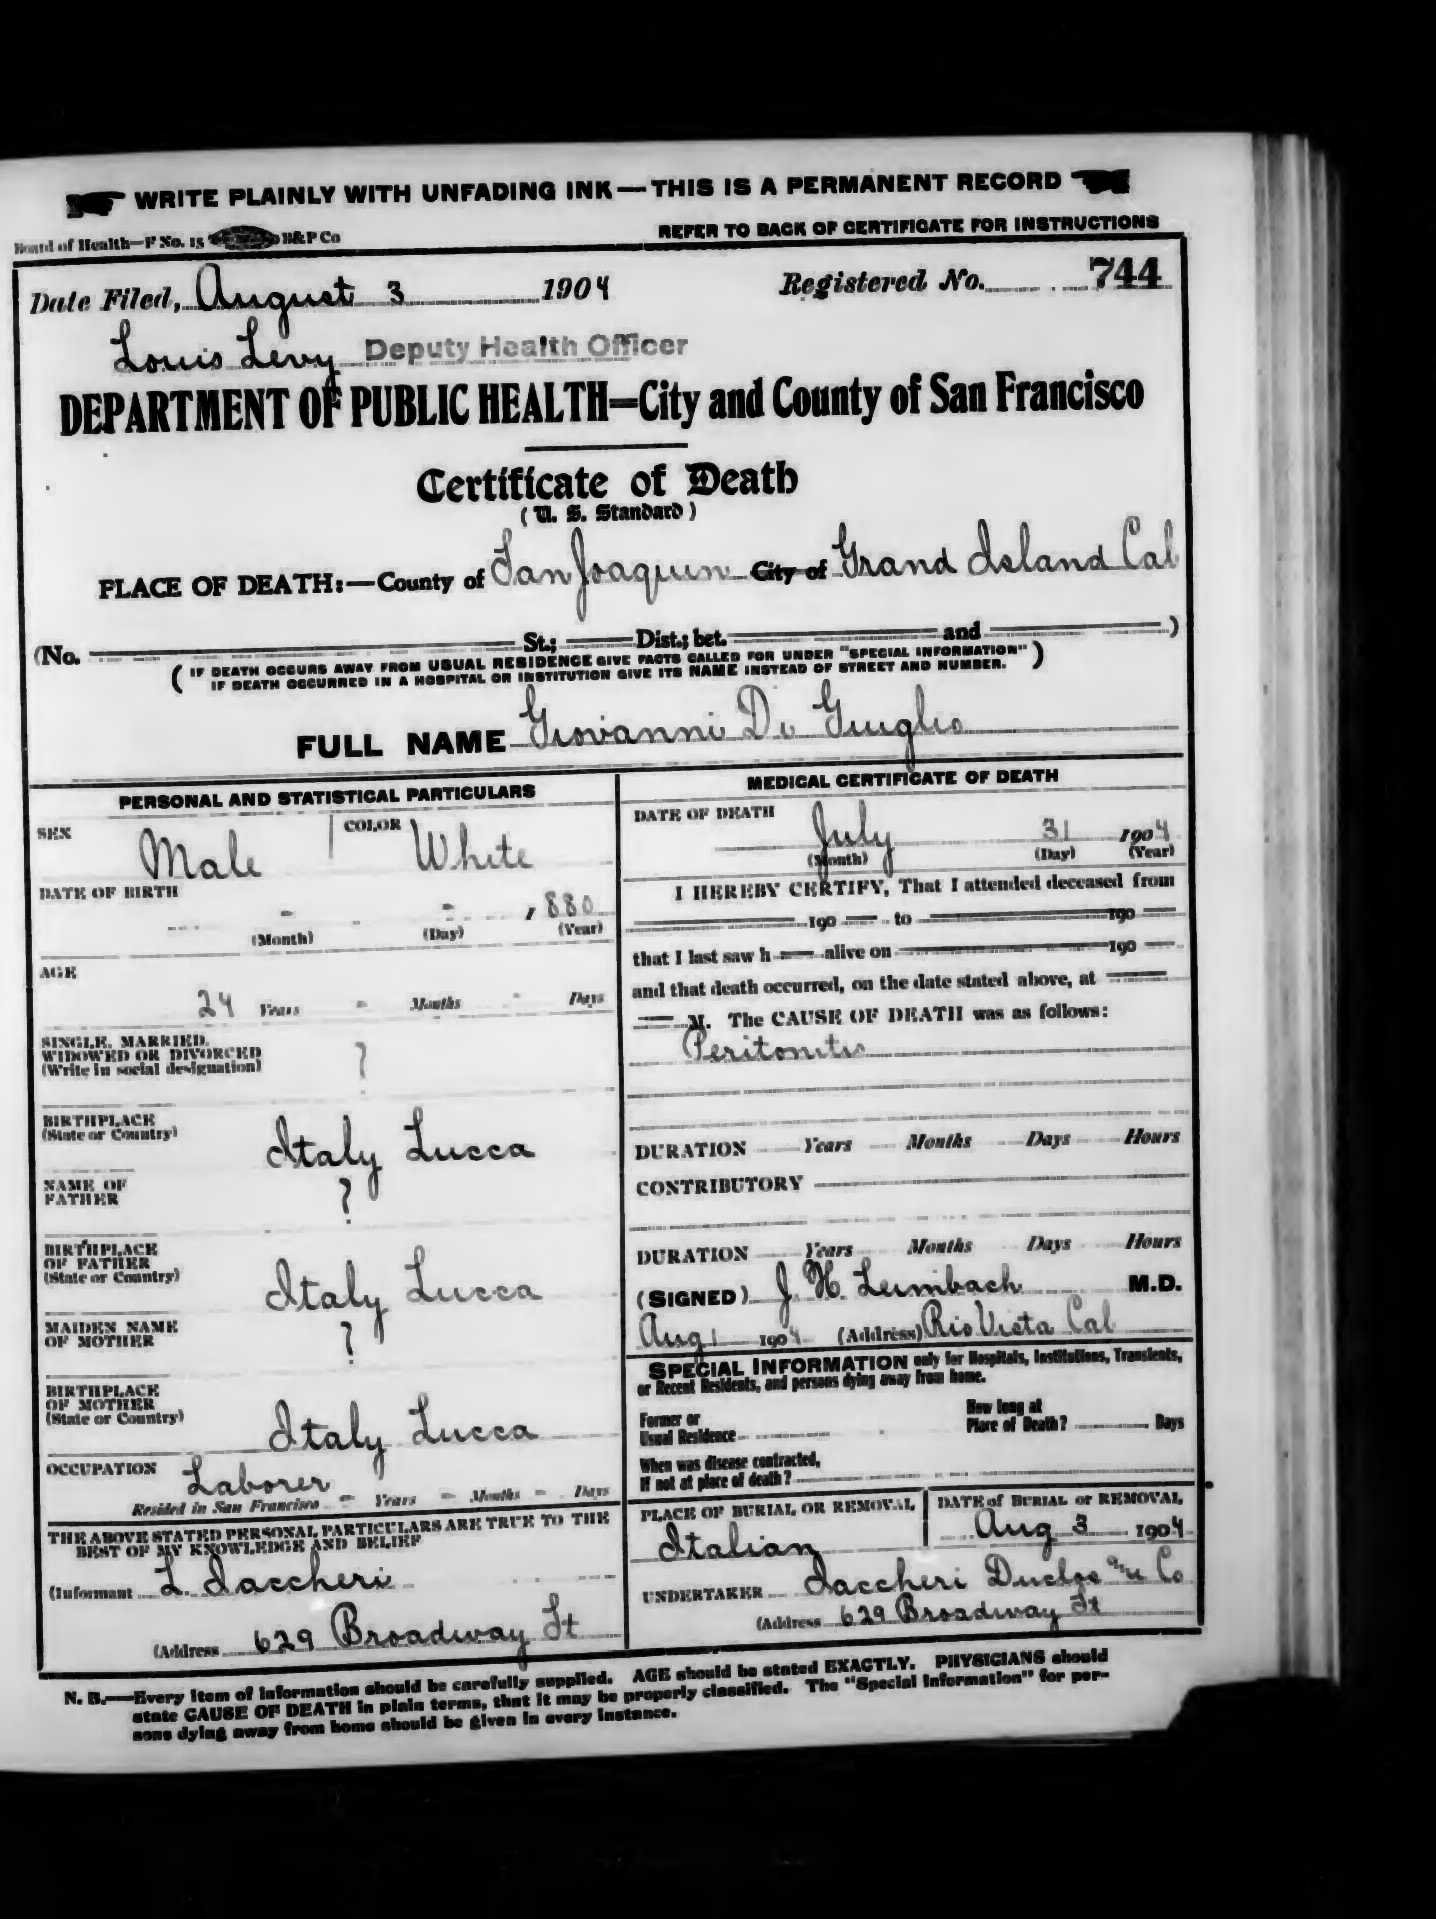 WRITE PLAINLY WITH UNFADING INK — THIS IS A PERMANENT RECORD
Board of Health—F No. 15 B&P Co
REFER TO BACK OF CERTIFICATE FOR INSTRUCTIONS
Date Filed, August 3 1904 Registered No. 744
Louis Levy Deputy Health Officer
DEPARTMENT OF PUBLIC HEALTH=City and County of San Francisco
Certificate of Death
( U. S. Standard )
PLACE OF DEATH:—County of San Joaquin City of Grand Island Cal
(No. St.; Dist.; bet. and )
( IF DEATH OCCURS AWAY FROM USUAL RESIDENCE GIVE FACTS CALLED FOR UNDER "SPECIAL INFORMATION" )
IF DEATH OCCURRED IN A HOSPITAL OR INSTITUTION GIVE ITS NAME INSTEAD OF STREET AND NUMBER.
FULL NAME Giovanni Di Guiglio
PERSONAL AND STATISTICAL PARTICULARS
SEX Male COLOR White
DATE OF BIRTH
- - , 880
(Month) (Day) (Year)
AGE
24 Years - Months - Days
SINGLE, MARRIED,
WIDOWED OR DIVORCED
(Write in social designation) ?
BIRTHPLACE
(State or Country) Italy Lucca
NAME OF
FATHER ?
BIRTHPLACE
OF FATHER
(State or Country) Italy Lucca
MAIDEN NAME
OF MOTHER ?
BIRTHPLACE
OF MOTHER
(State or Country) Italy Lucca
OCCUPATION Laborer
Resided in San Francisco - Years - Months - Days
THE ABOVE STATED PERSONAL PARTICULARS ARE TRUE TO THE
BEST OF MY KNOWLEDGE AND BELIEF
(Informant L. Iaccheri
(Address 629 Broadway St
MEDICAL CERTIFICATE OF DEATH
DATE OF DEATH
July 31 1904
(Month) (Day) (Year)
I HEREBY CERTIFY, That I attended deceased from
190 to 190
that I last saw h alive on 190
and that death occurred, on the date stated above, at
M. The CAUSE OF DEATH was as follows:
Peritonitis
DURATION Years Months Days Hours
CONTRIBUTORY
DURATION Years Months Days Hours
(SIGNED) J. H. Leimbach M.D.
Aug 1 1904 (Address) Rio Vista Cal
SPECIAL INFORMATION only for Hospitals, Institutions, Transients,
or Recent Residents, and persons dying away from home.
Former or
Usual Residence
How long at
Place of Death? Days
When was disease contracted,
If not at place of death?
PLACE OF BURIAL OR REMOVAL
Italian
DATE of BURIAL or REMOVAL
Aug 3 1904
UNDERTAKER Iaccheri Duclos and Co
(Address 629 Broadway St
N. B.—Every item of information should be carefully supplied. AGE should be stated EXACTLY. PHYSICIANS should
state CAUSE OF DEATH in plain terms, that it may be properly classified. The "Special Information" for per-
sons dying away from home should be given in every instance.